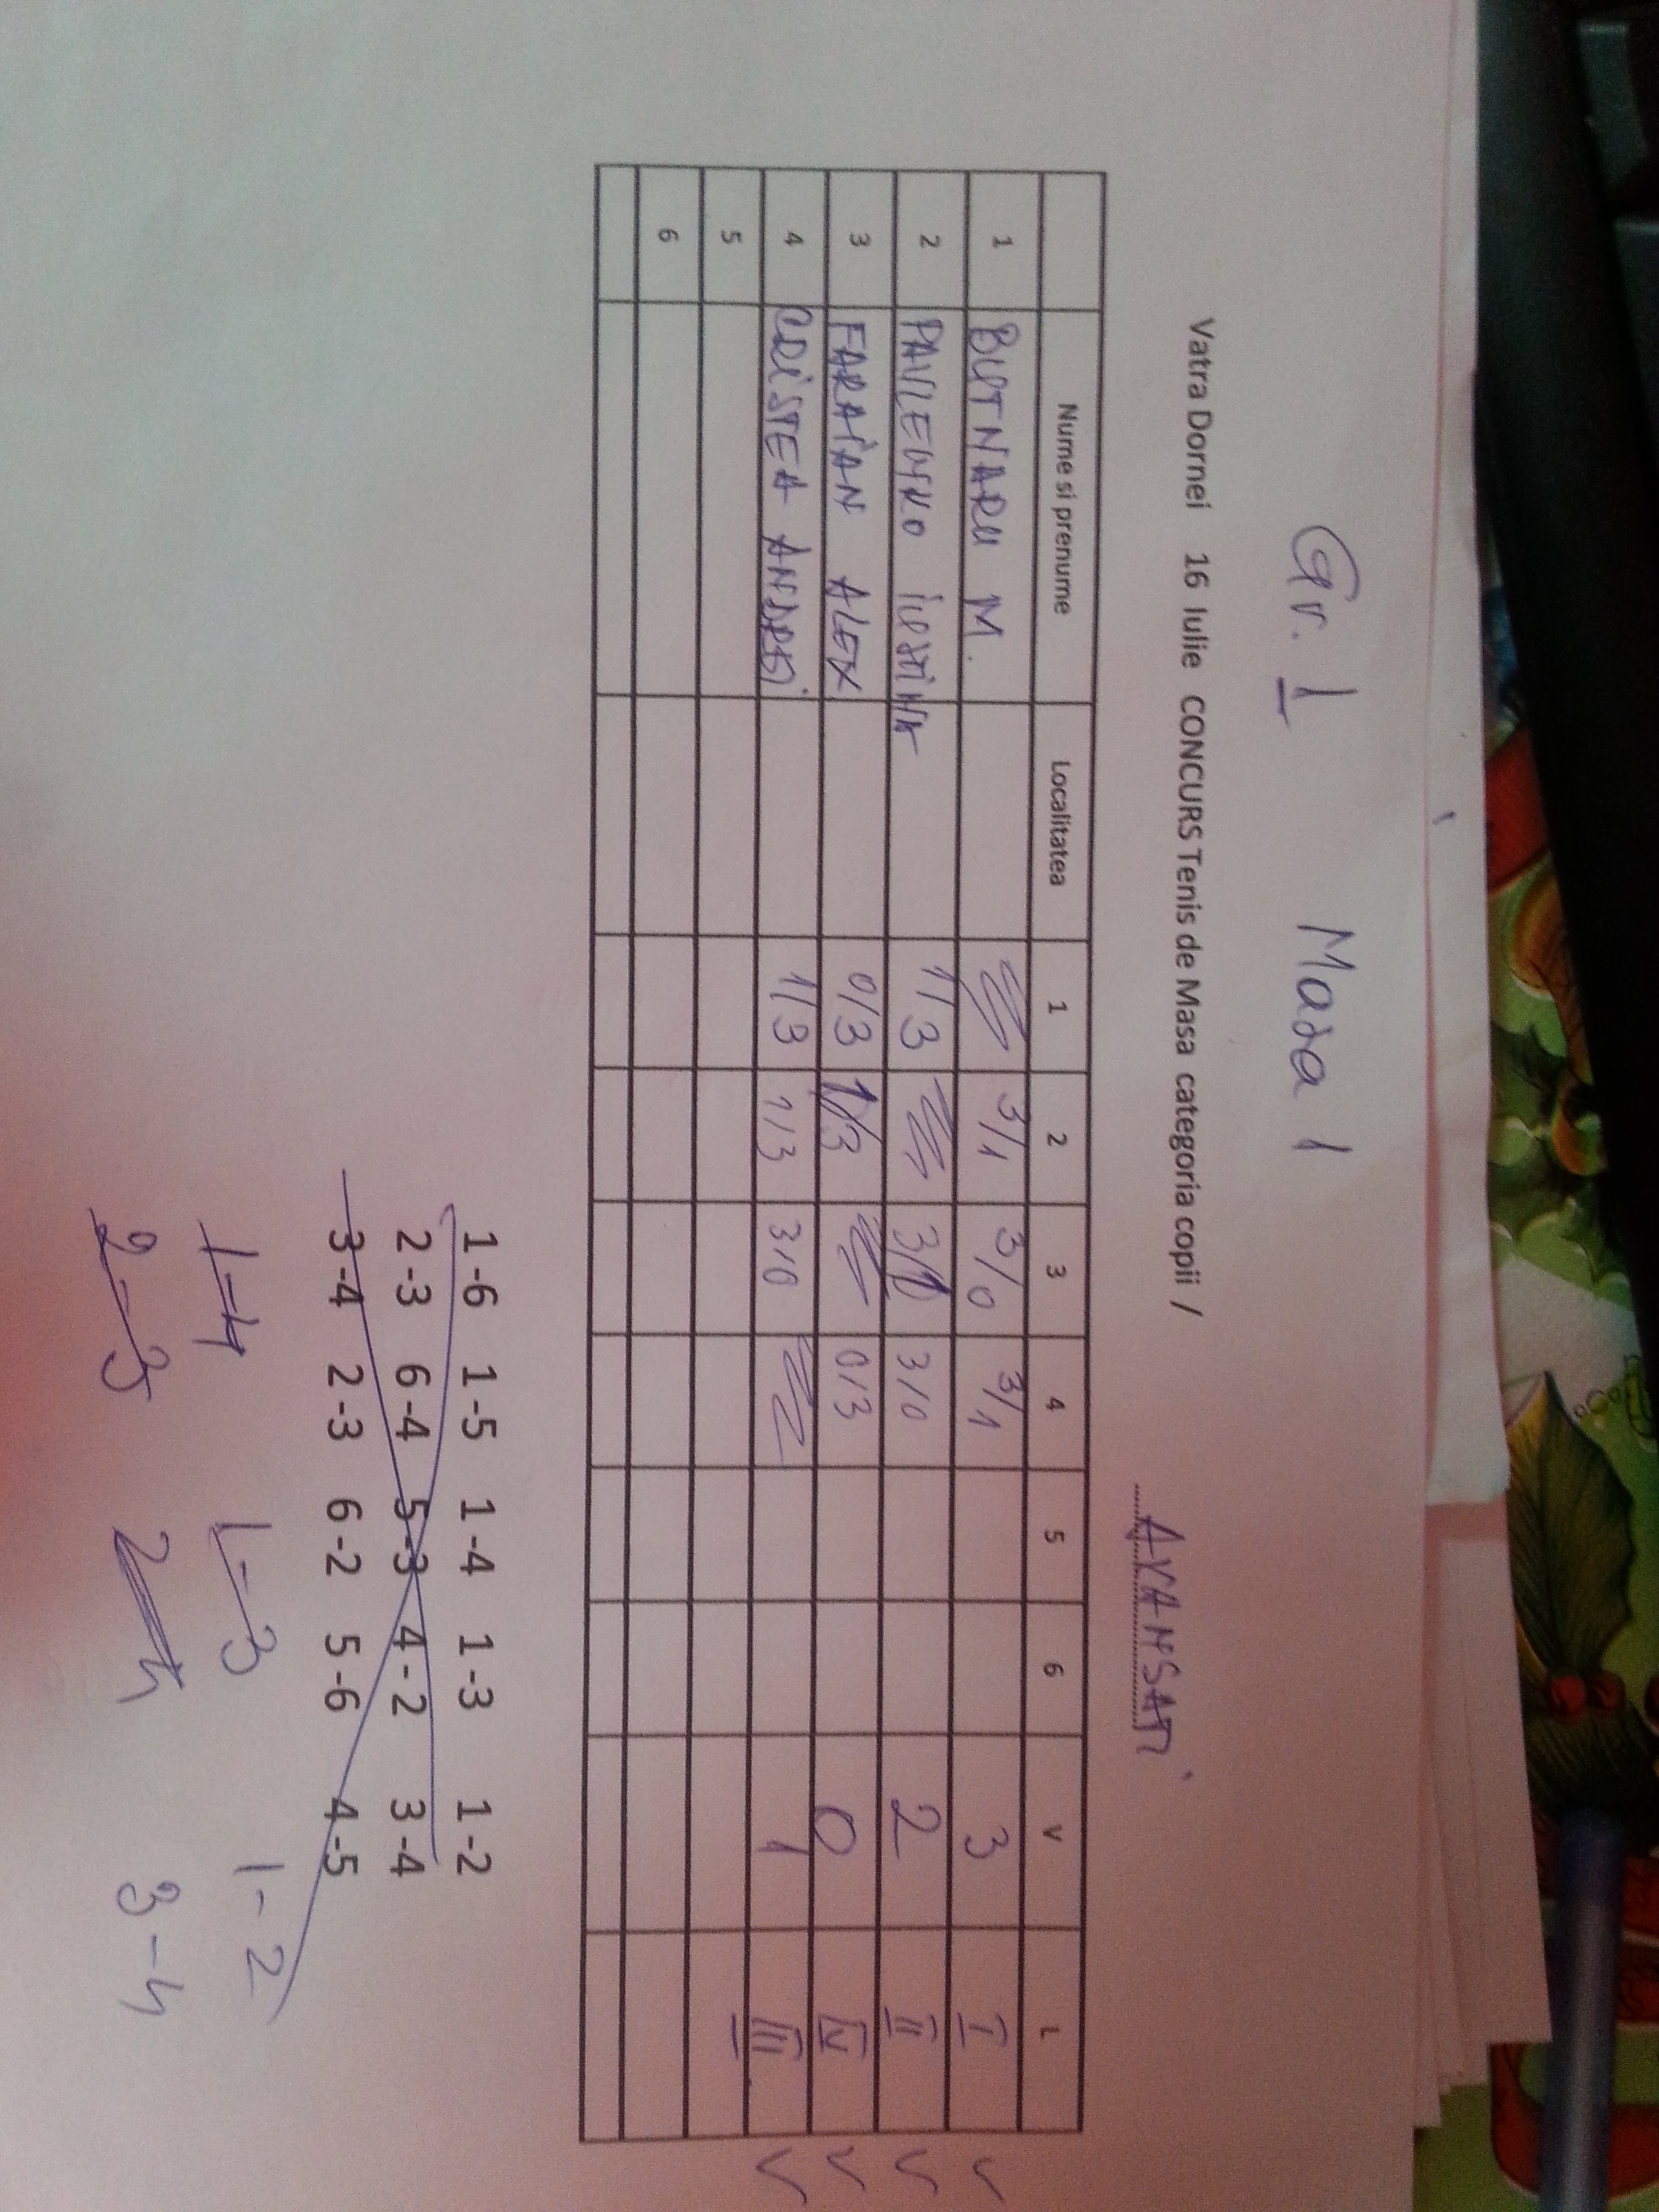 Gr. I Masa 1
Vatra Dornei 16 Iulie CONCURS Tenis de Masa categoria copii /
AVANSATI
Nume si prenume Localitatea 1 2 3 4 5 6 V L
1 BUTNARU M. 3/1 3/0 3/1 3 I
2 1/3 3/0 2 II
3 FARAIAN ALEX 0/3 1/3 0/3 0 IV
4 CRISTEA ANDREI 1/3 1/3 3/0 1 III
5
6
1-6 1-5 1-4 1-3 1-2
2-3 6-4 5-3 4-2 3-4
3-4 2-3 6-2 5-6 4-5
1-4 1-3 1-2
2-3 2-4 3-4